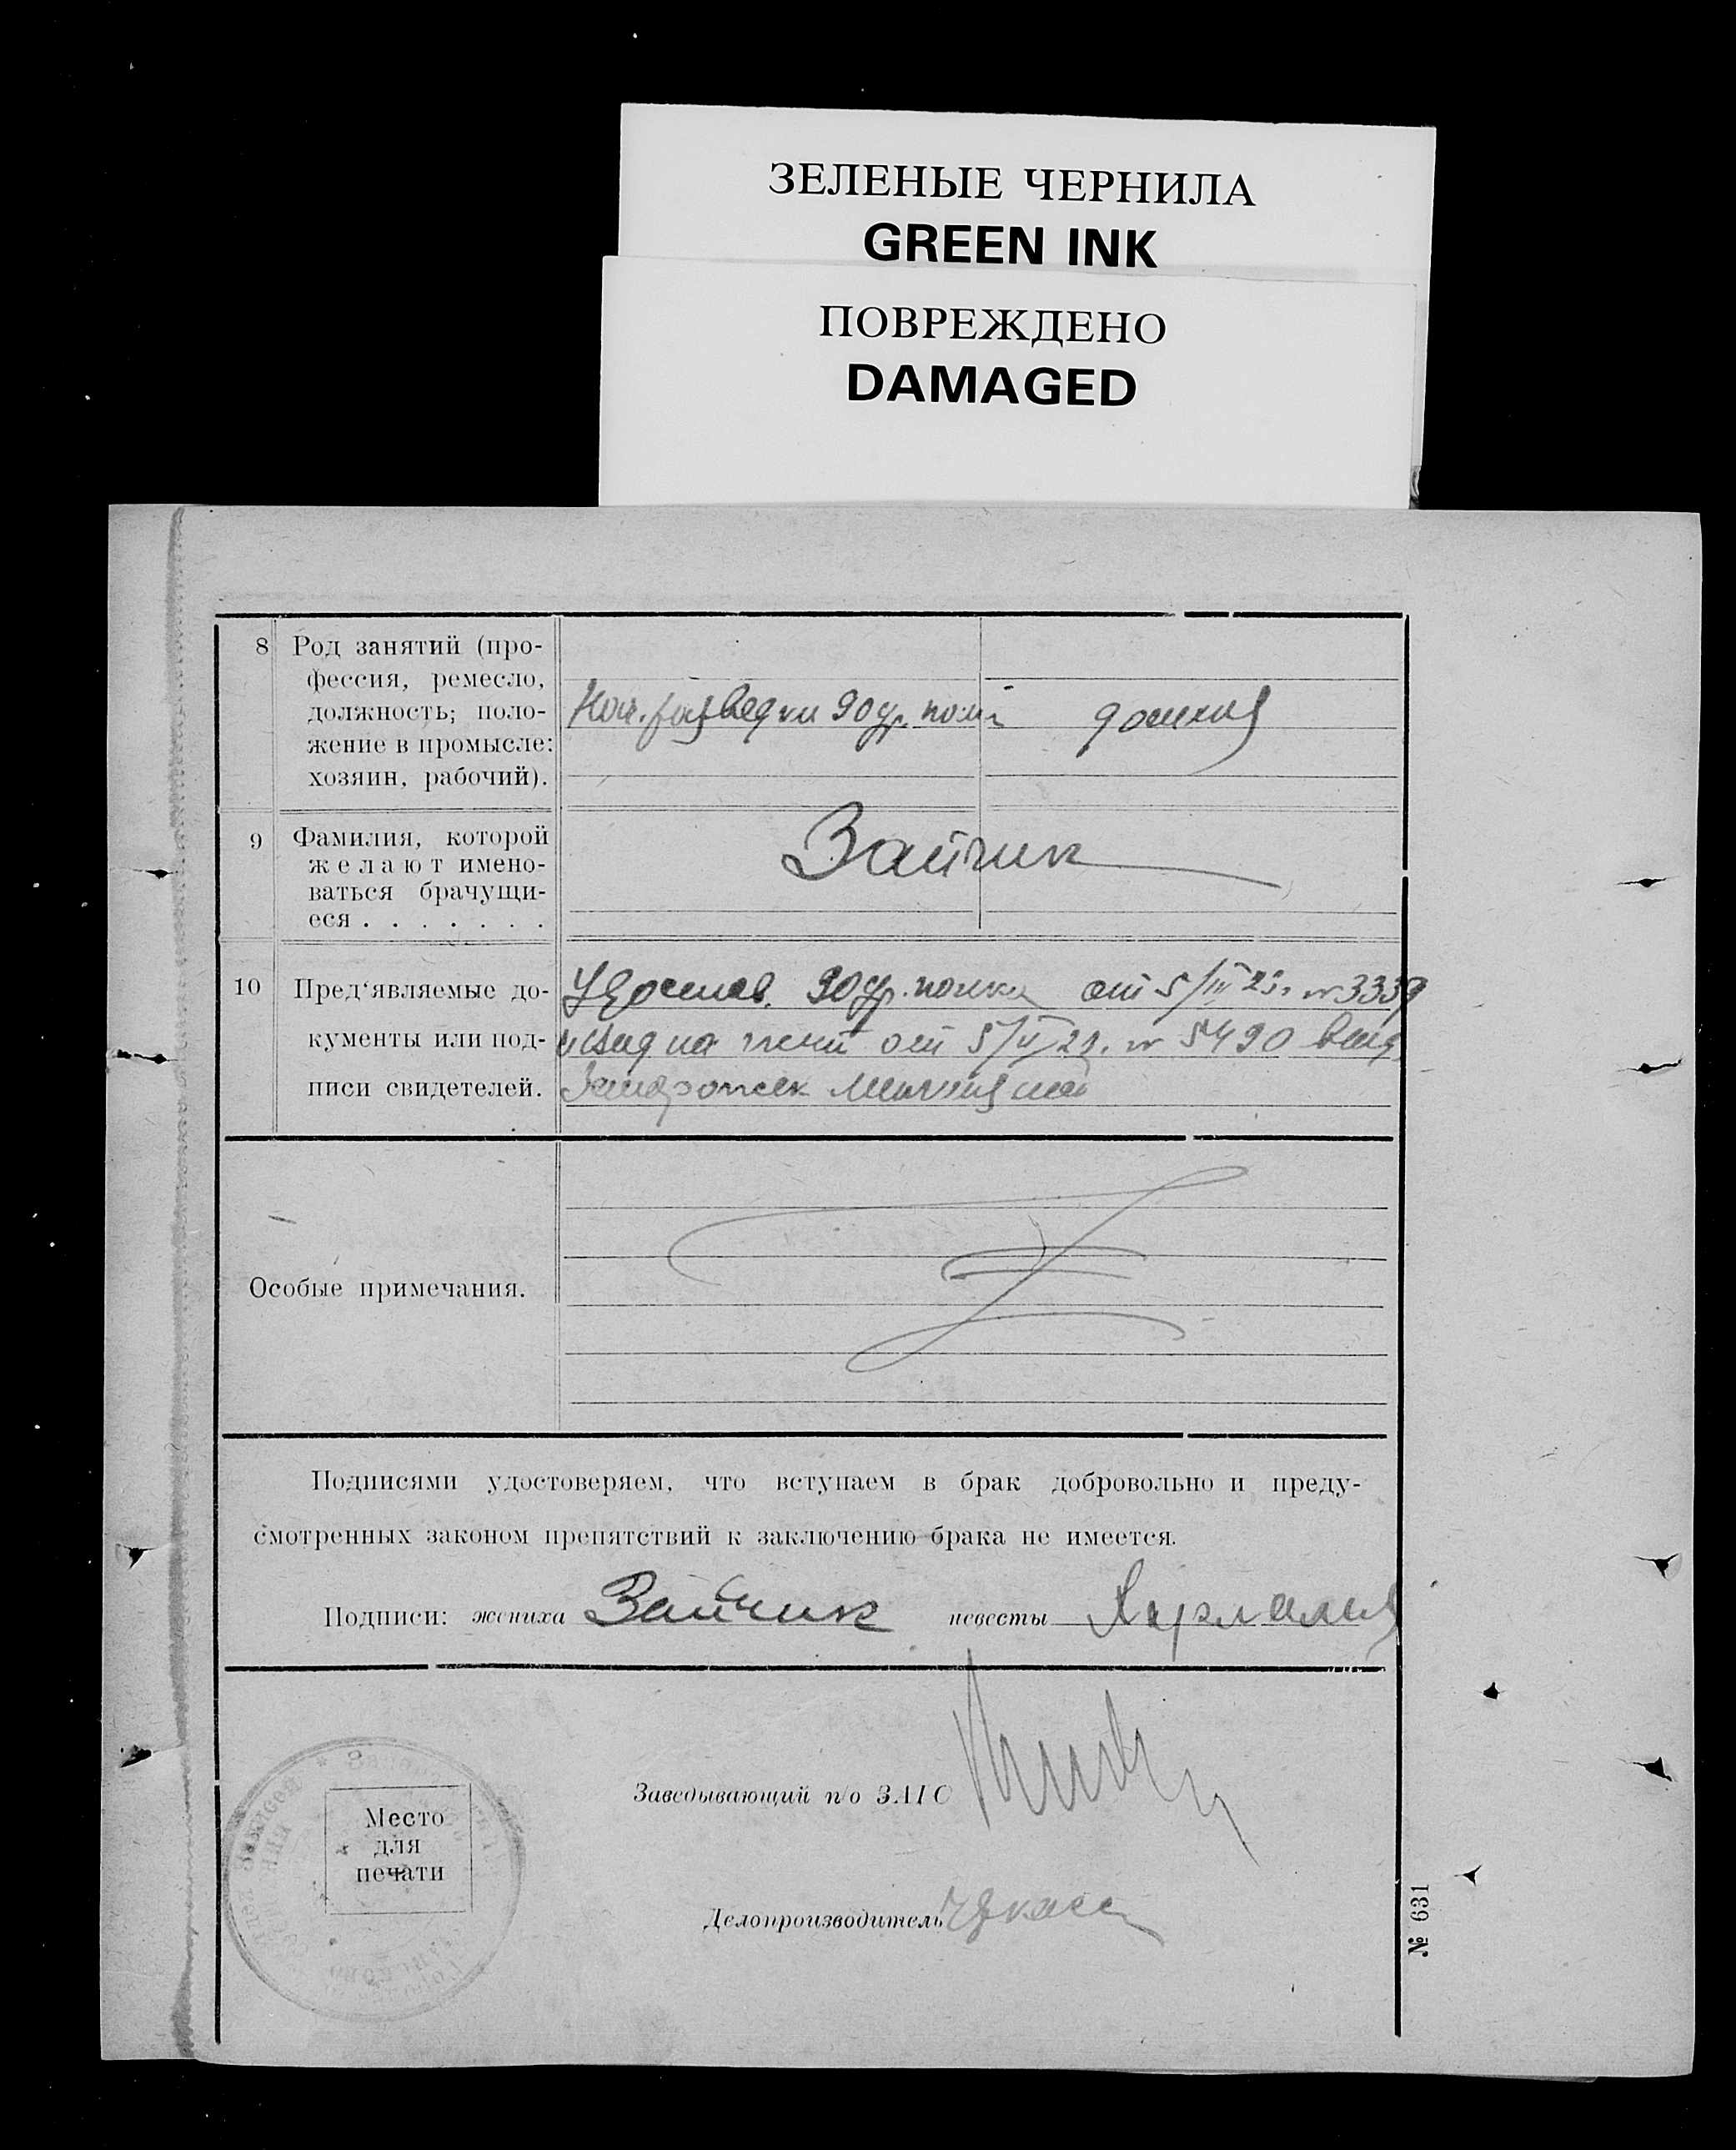 ЗЕЛЕНЫЕ ЧЕРНИЛА
GREEN INK
ПОВРЕЖДЕНО
DAMAGED
8 Род занятий (про-
фессия, ремесло,
должность; поло-
жение в промысле:
хозяин, рабочий).
Нач. разведки 90 др. полк
домаш
9 Фамилия, которой
желают имено-
ваться брачущи-
еся . . . . . . .
Зайчик
10 Пред‘являемые до-
кументы или под-
писи свидетелей.
Удостов. 90 др. полка от 5/III 23. № 3339
и вид на жит от 5/II 21. № 5490 выд.
милицией
Особые примечания.
Подписями удостоверяем, что вступаем в брак добровольно и преду-
смотренных законом препятствий к заключению брака не имеется.
Подписи: жениха Зайчик невесты
Заведывающий п/о ЗАГС
Место
для
печати
Делопроизводитель
№ 631